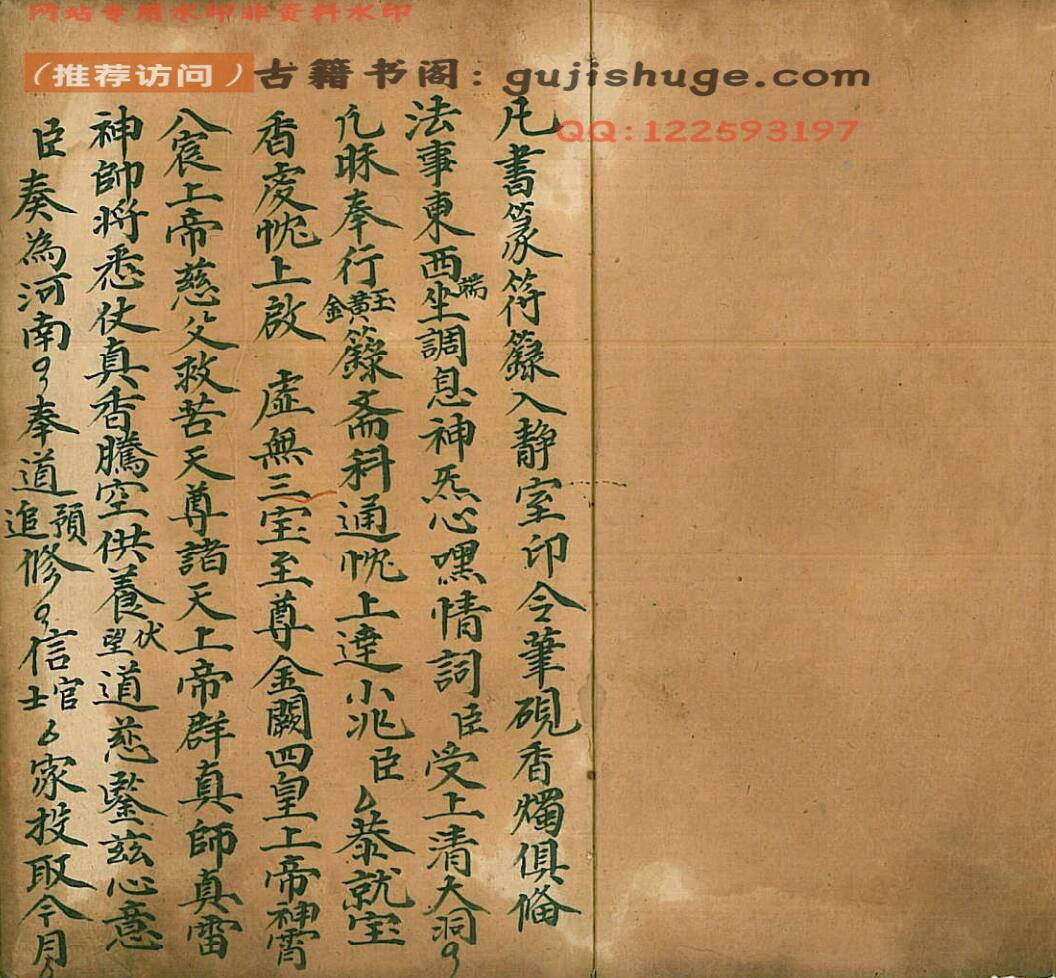 网站专用水印非资料水印
（推荐访问）古籍书阁：gujishuge.com
QQ:122593197
凡書篆符籙入静室印令筆硯香燭俱俻
法事東西端坐調息神炁心嘿情詞臣受上清大洞
凡昧奉行玉黄金籙斋科通忱上達小兆臣厶恭就宝
香虔忱上啟　虚無三宝至尊金闕四皇上帝神霄
八宸上帝慈父救苦天尊諸天上帝群真師真雷
神帥将悉仗真香騰空供養伏望道慈鑒兹心意
臣奏為河南奉道預追修信官士厶家投取今月